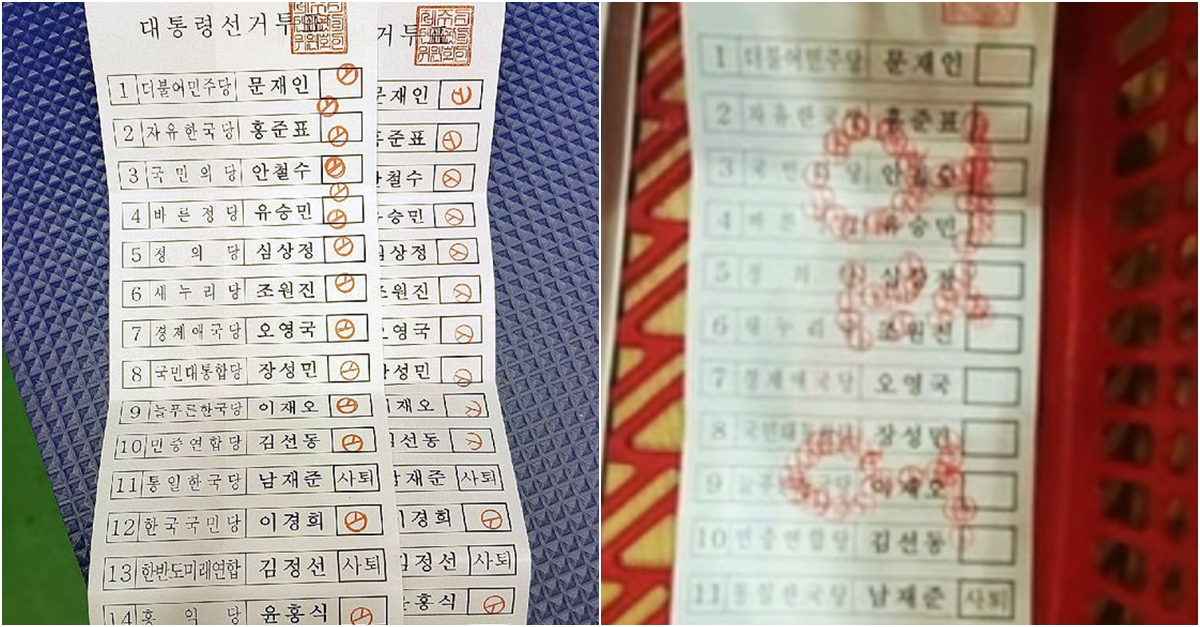 대통령선거투
1 더불어민주당 문재인
2 자유한국당 홍준표
3 국민의당 안철수
4 바른정당 유승민
5 정의당 심상정
6 새누리당 조원진
7 경제애국당 오영국
8 국민대통합당 장성민
9 늘푸른한국당 이재오
10 민중연합당 김선동
11 통일한국당 남재준 사퇴
12 한국국민당 이경희
13 한반도미래연합 김정선 사퇴
14 홍익당 윤홍식
거투
문재인
홍준표
안철수
유승민
심상정
조원진
오영국
장성민
이재오
김선동
남재준 사퇴
이경희
김정선 사퇴
윤홍식
1 더불어민주당 문재인
2 자유한국당 홍준표
3 국민의당 안철수
4 바른 유승민
5 정의당 심상정
6 새누리당 조원진
7 경제애국당 오영국
8 국민대통합당 장성민
9 늘푸른한국당 이재오
10 민중연합당 김선동
11 통일한국당 남재준 사퇴